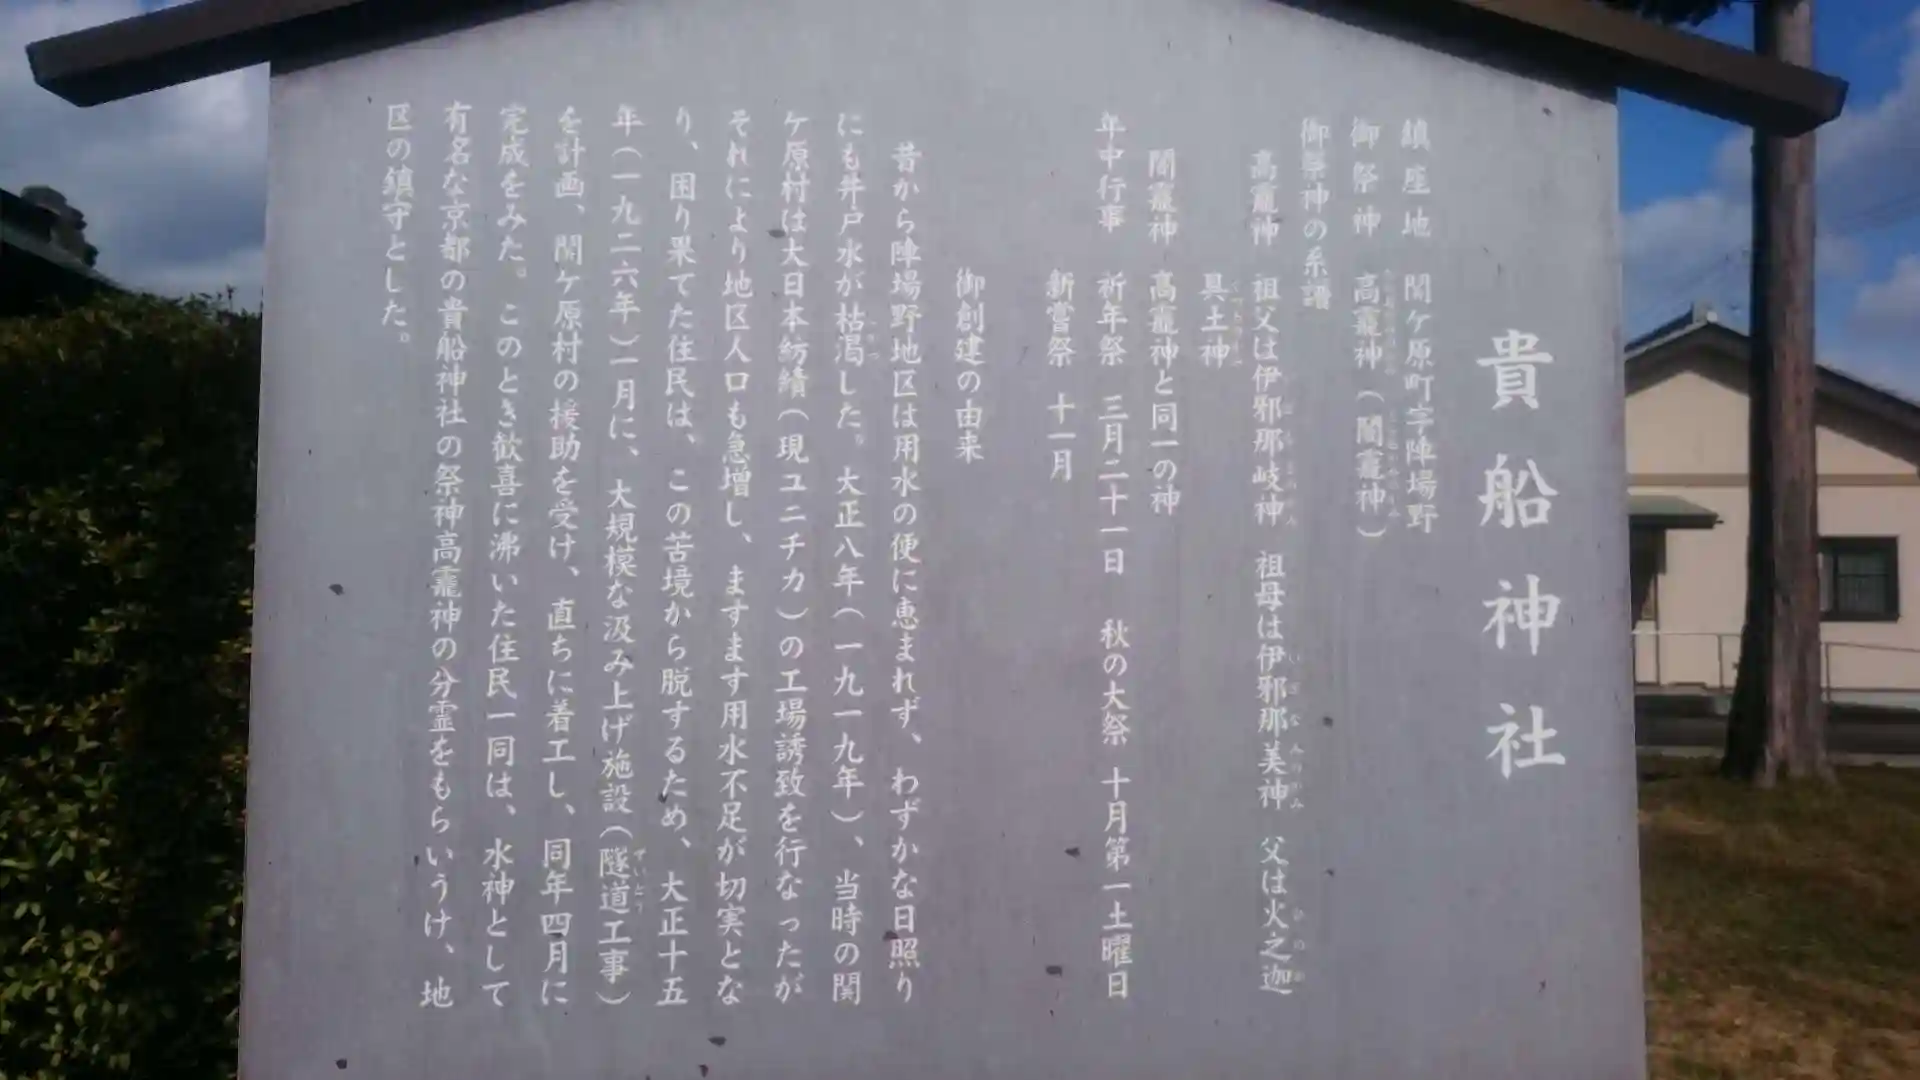 貴船神社
鎮座地 関ケ原町字陣場野
御祭神 高龗神(闇龗神)
御祭神の系譜
高龗神 祖父は伊邪那岐神 祖母は伊邪那美神 父は火之迦
具土神
闇龗神 高龗神と同一の神
年中行事 祈年祭 三月二十一日 秋の大祭 十月第一土曜日
新嘗祭 十一月
御創建の由来
昔から陣場野地区は用水の便に恵まれず、わずかな日照り
にも井戸水が枯渇した。大正八年(一九一九年)、当時の関
ケ原村は大日本紡績(現ユニチカ)の工場誘致を行なったが
それにより地区人口も急増し、ますます用水不足が切実とな
り、困り果てた住民は、この苦境から脱するため、大正十五
年(一九二六年)一月に、大規模な汲み上げ施設(隧道工事)
を計画、関ケ原村の援助を受け、直ちに着工し、同年四月に
完成をみた。このとき歓喜に沸いた住民一同は、水神として
有名な京都の貴船神社の祭神高龗神の分霊をもらいうけ、地
区の鎮守とした。